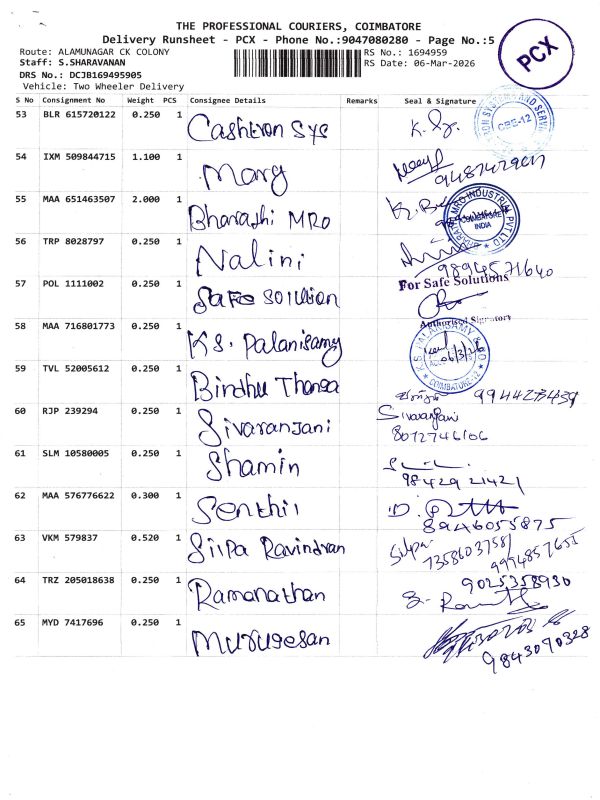 THE PROFESSIONAL COURIERS, COIMBATORE
Delivery Runsheet - PCX - Phone No.:9047080280 - Page No.:5
PCX
Route: ALAMUNAGAR CK COLONY
RS No.: 1694959
Staff: S.SHARAVANAN
RS Date: 06-Mar-2026
DRS No.: DCJB169495905
Vehicle: Two Wheeler Delivery
S No Consignment No Weight PCS Consignee Details Remarks Seal & Signature
53 BLR 615720122 0.250 1 Cashtron Sys
CBE-12
54 IXM 509844715 1.100 1 Mary
55 MAA 651463507 2.000 1 Bharathi MRO
BHARATHI MRO INDUSTRIAL PVT LTD
COIMBATORE
INDIA
56 TRP 8028797 0.250 1 Nalini
9894571640
57 POL 1111002 0.250 1 Safe Solution
For Safe Solutions
Authorised Signatory
58 MAA 716801773 0.250 1 K.S. Palanisamy
K.S. PALANISAMY & CO
06/3/26
COIMBATORE-12
59 TVL 52005612 0.250 1 Bindhu
60 RJP 239294 0.250 1 Sivaranjani
Sivaranjani
8072746106
61 SLM 10580005 0.250 1 Shamin
98429 21421
62 MAA 576776622 0.300 1 Senthil
8946055875
63 VKM 579837 0.520 1 Silpa Ravindran
Silpa
7358603758/
9994857651
64 TRZ 205018638 0.250 1 Ramanathan
9025358930
65 MYD 7417696 0.250 1 Murugesan
9843090328